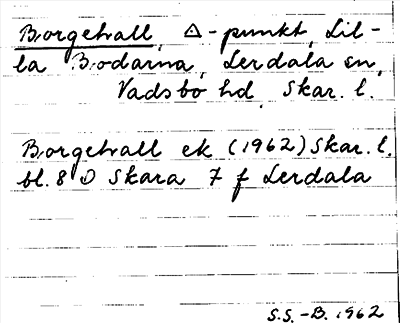 Borgehall, △-punkt, Lil-
la Bodarna, Lerdala sn,
Vadsbo hd, Skar. l.
Borgehall ek (1962) Skar. l.
bl. 8 D Skara 7 f Lerdala
S.S.-B. 1962